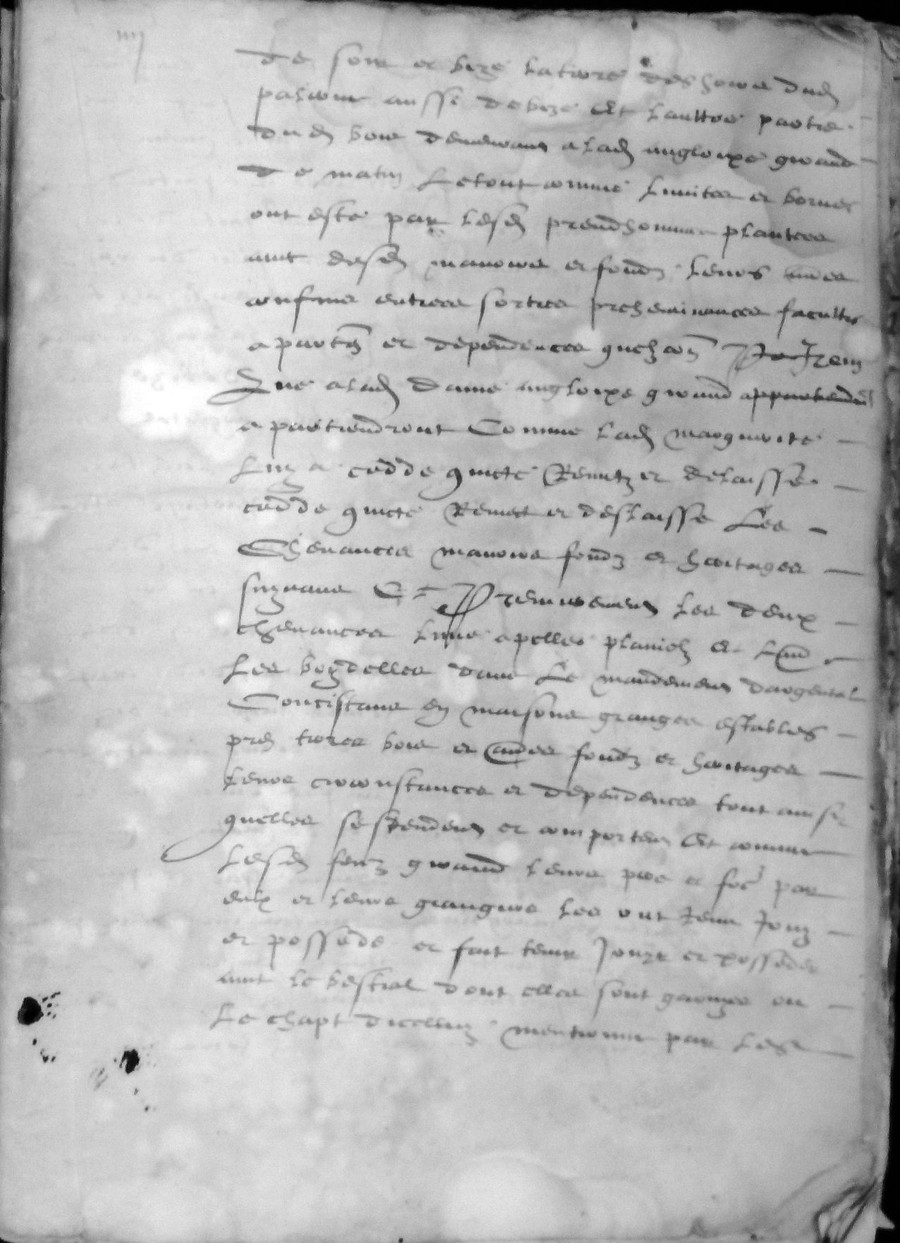 iiij
de soir et bize la terre des hoirs dud
paliour aussi de bize Et laultre partie
dud bois demeurant a lad angloixe girard
de matin Le tout comme limites et bornes
ont este par lesd preudhommes plantees
avec desd manoirs et fondz leurs aises
confins entrees sorties preheminances facultes
apartz et dependences quelconq Item
Que a lad dame angloixe girard appartiendra
apartiendront Comme lad marguerite
luy a cedde quicte Remitz et delaisse
cedde quicte Remet et deslaisse Les
Chevances manoirs fondz et heritages
suyvans Et Premierement les deux
chevances lune apellee planiol et lau
Les bordelles dans Le mandement dargental
Concistans en maisons granges estables
pred terres bois et autres fondz et heritages
leurs circonstances et dependences tout ainsi
quelles se extendent et comportent Et comme
lesd feuz girard leurs pere et
eulx et leurs grangiers les ont tenu Jouy
et possede et fait tenir Jouyr et posseder
avec le bestial dont elles sont garnyes ou
Le chapt dicelluy mentionne par les